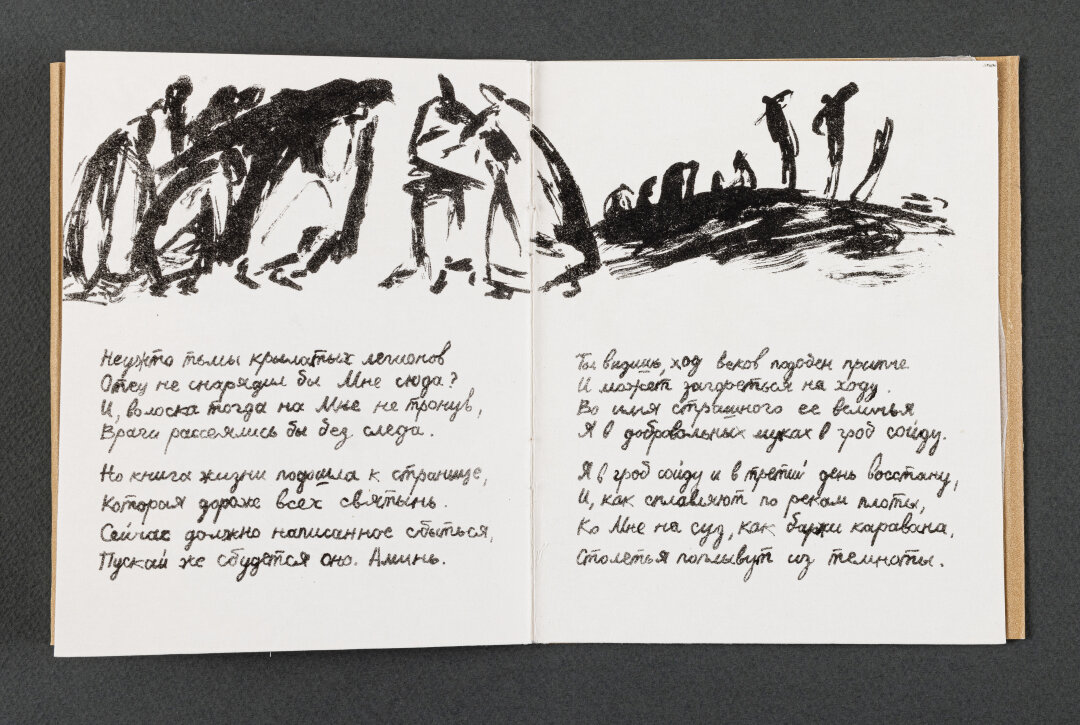 Неужто тьмы крылатых легионов
Отец не снарядил бы Мне сюда?
И, волоска тогда на Мне не тронув,
Враги рассеялись бы без следа.
Но книга жизни подошла к странице,
Которая дороже всех святынь.
Сейчас должно написанное сбыться,
Пускай же сбудется оно. Аминь.
Ты видишь, ход веков подобен притче
И может загореться на ходу.
Во имя страшного ее величья
Я в добровольных муках в гроб сойду.
Я в гроб сойду и в третий день восстану,
И, как сплавляют по рекам плоты,
Ко Мне на суд, как баржи каравана,
Столетья поплывут из темноты.